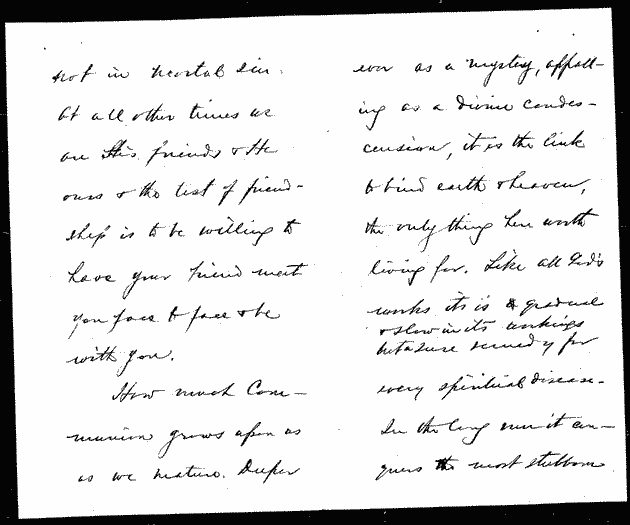 not in mortal sin.
At all other times we
are His friends & He
ours & the test of friend-
ship is to be willing to
have your friend meet
you face to face & be
with you.
How much Com-
munion grows upon us
as we mature. Deeper
ever as a mystery, appall-
ing as a divine condes-
cension, it is the link
to bind earth & heaven,
the only thing here worth
living for. Like all God's
works its is gradual
& slow in its workings
but a sure remedy for
every spiritual disease.
In the long run it con-
quers the most stubborn